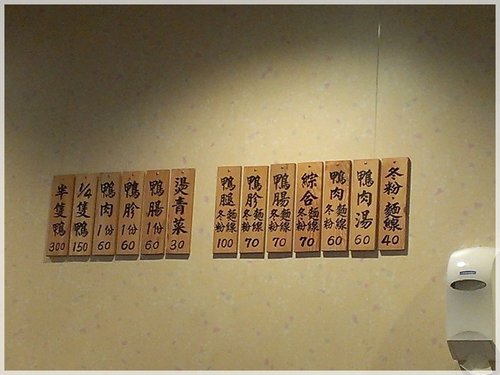 冬粉·麵線 40
鴨肉湯 60
鴨肉冬粉麵線 60
綜合冬粉麵線 70
鴨腸冬粉麵線 70
鴨胗冬粉麵線 70
鴨腿冬粉麵線 100
燙青菜 30
鴨腸1份 60
鴨胗1份 60
鴨肉1份 60
1/4隻鴨 150
半隻鴨 300